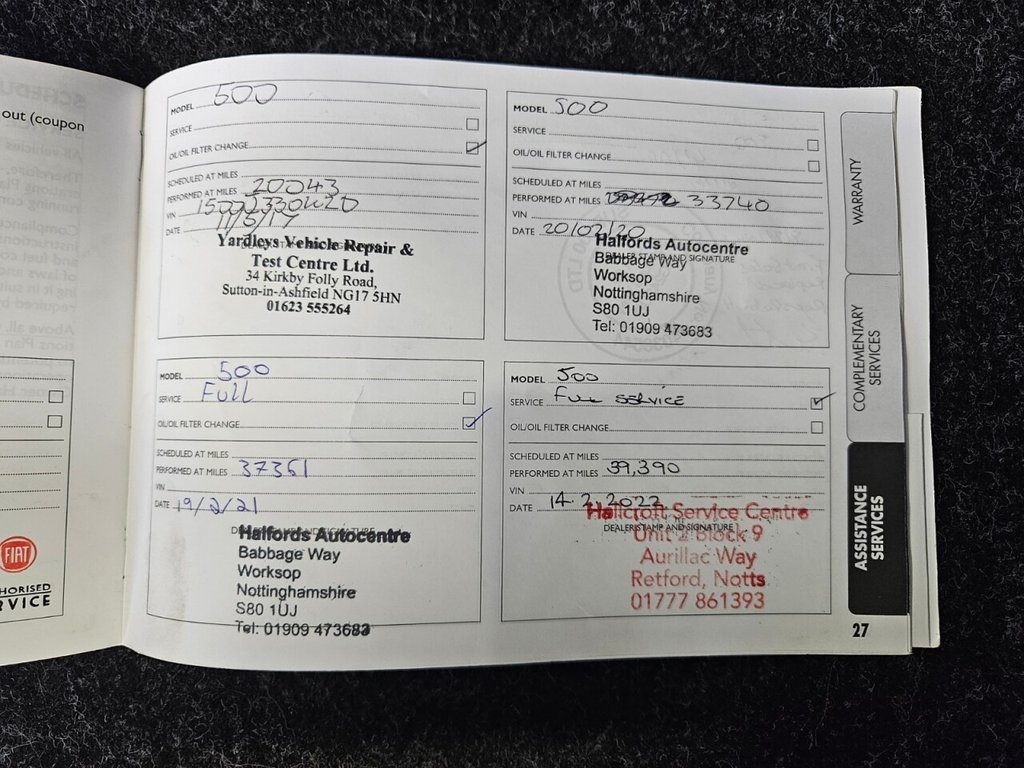 out (coupon
FIAT
HORISED
RVICE
MODEL 500
SERVICE
OIL/OIL FILTER CHANGE
SCHEDULED AT MILES
PERFORMED AT MILES 20043
VIN
DATE
DEALER STAMP AND SIGNATURE
Yardleys Vehicle Repair &
Test Centre Ltd.
34 Kirkby Folly Road,
Sutton-in-Ashfield NG17 5HN
01623 555264
MODEL 500
SERVICE
OIL/OIL FILTER CHANGE
SCHEDULED AT MILES
PERFORMED AT MILES 33740
VIN
DATE 20/02/20
DEALER STAMP AND SIGNATURE
Halfords Autocentre
Babbage Way
Worksop
Nottinghamshire
S80 1UJ
Tel: 01909 473683
MODEL 500
SERVICE Full
OIL/OIL FILTER CHANGE
SCHEDULED AT MILES
PERFORMED AT MILES 37361
VIN
DATE 19/2/21
DEALER STAMP AND SIGNATURE
Halfords Autocentre
Babbage Way
Worksop
Nottinghamshire
S80 1UJ
Tel: 01909 473683
MODEL 500
SERVICE Full service
OIL/OIL FILTER CHANGE
SCHEDULED AT MILES
PERFORMED AT MILES 39,390
VIN
DATE 14 2 2022
DEALER STAMP AND SIGNATURE
Hallcroft Service Centre
Unit 2 Block 9
Aurillac Way
Retford, Notts
01777 861393
WARRANTY
COMPLEMENTARY
SERVICES
ASSISTANCE
SERVICES
27